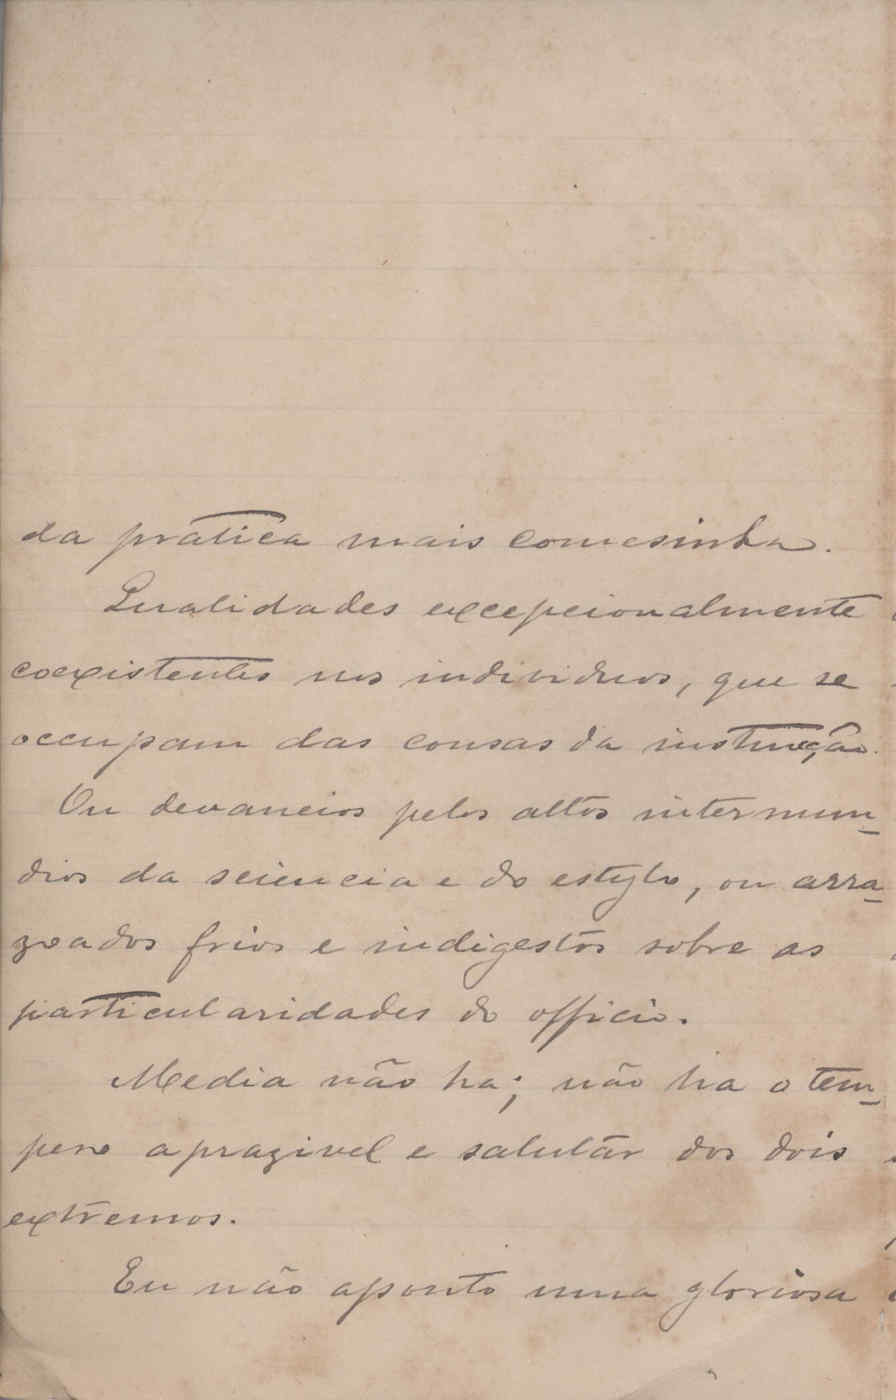 da pratica mais comesinha.
Qualidades excepcionalmente
coexistentes nos individuos, que se
occupam das cousas da instrucção.
Ou devaneios pelos altos intermun-
dios da sciencia e do estylo, ou arra-
zoados frios e indigestos sobre as
particularidades do officio.
Media não ha; não ha o tem-
pero aprazivel e salutar dos dois
extremos.
Eu não aponto uma gloriosa